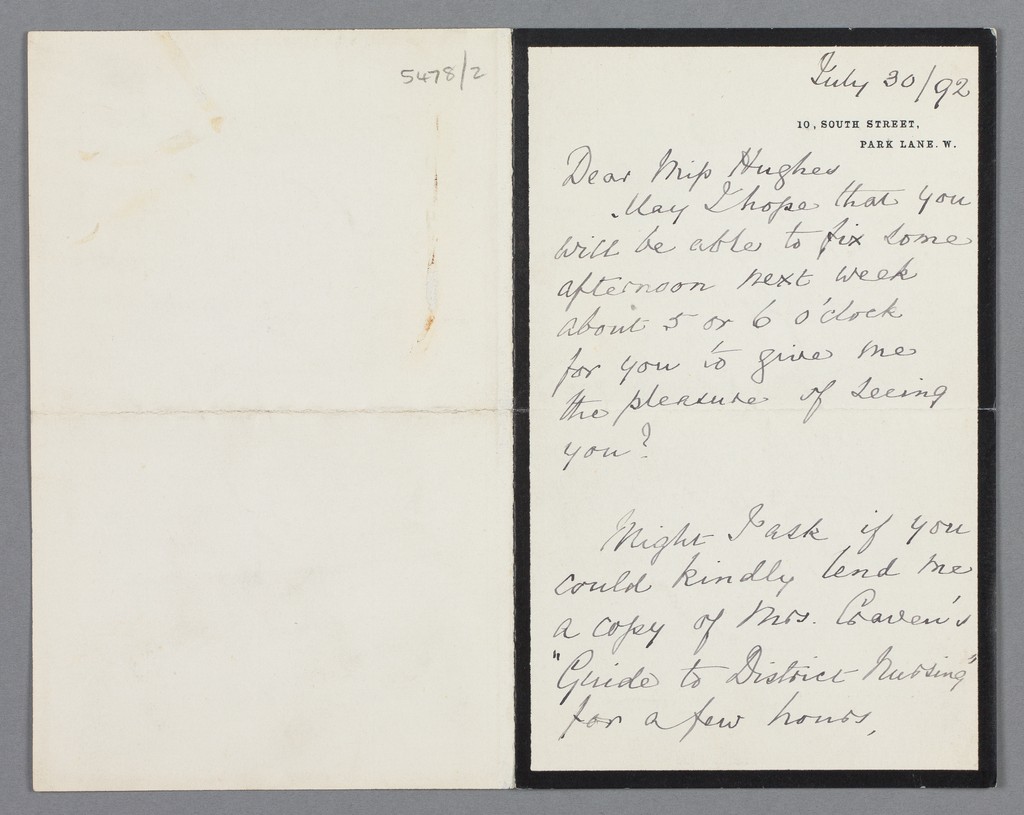 5478/2
July 30/92
10, SOUTH STREET,
PARK LANE. W.
Dear Miss Hughes
May I hope that you
will be able to fix some
afternoon next week
about 5 or 6 o'clock
for you to give me
the pleasure of seeing
you?
Might I ask if you
could kindly lend me
a copy of Mrs. Craven's
"Guide to District Nursing"
for a few hours,